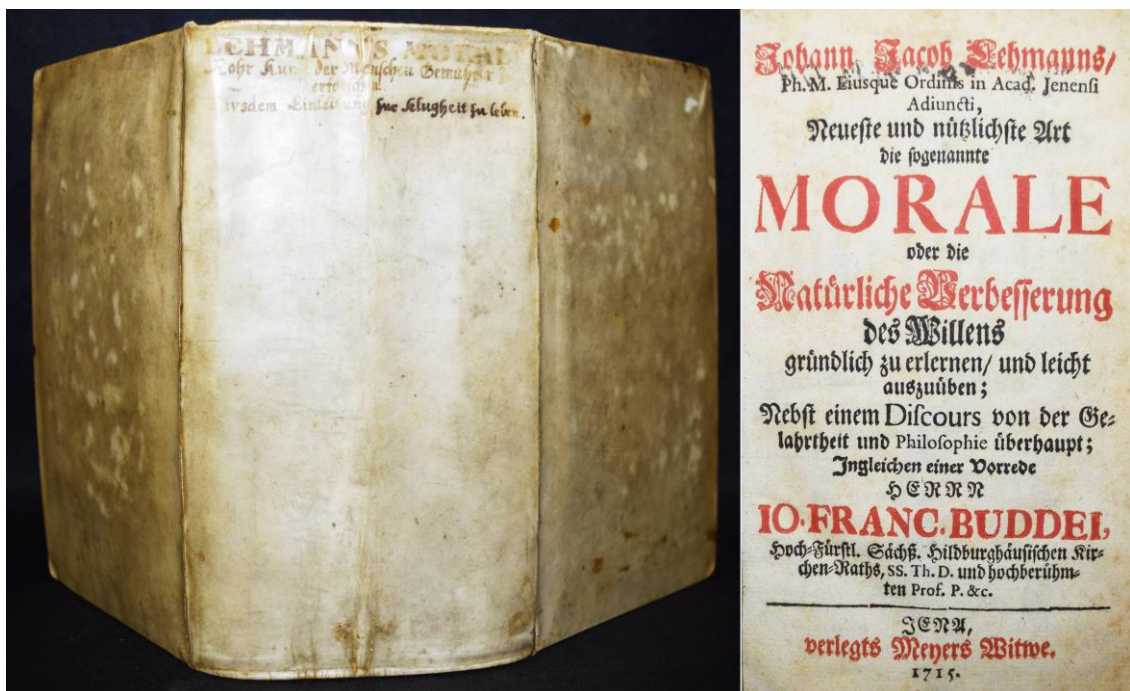 LEHMANNS MORAL
Rohr Kunst der Menschen Gemüther
erforschen.
Eiusdem Einleitung zur Klugheit zu leben.
Johann Jacob Lehmanns/
Ph. M. Eiusque Ordinis in Acad. Jenensi
Adiuncti,
Neueste und nützlichste Art
die sogenannte
MORALE
oder die
Natürliche Verbesserung
des Willens
gründlich zu erlernen/ und leicht
auszuüben;
Nebst einem Discours von der Ge-
lahrtheit und Philosophie überhaupt;
Ingleichen einer Vorrede
HERRN
IO. FRANC. BUDDEI,
Hoch-Fürstl. Sächß. Hildburghäusischen Kir-
chen-Raths, SS. Th. D. und hochberühm-
ten Prof. P. &c.
JENA,
verlegts Meyers Witwe.
1715.